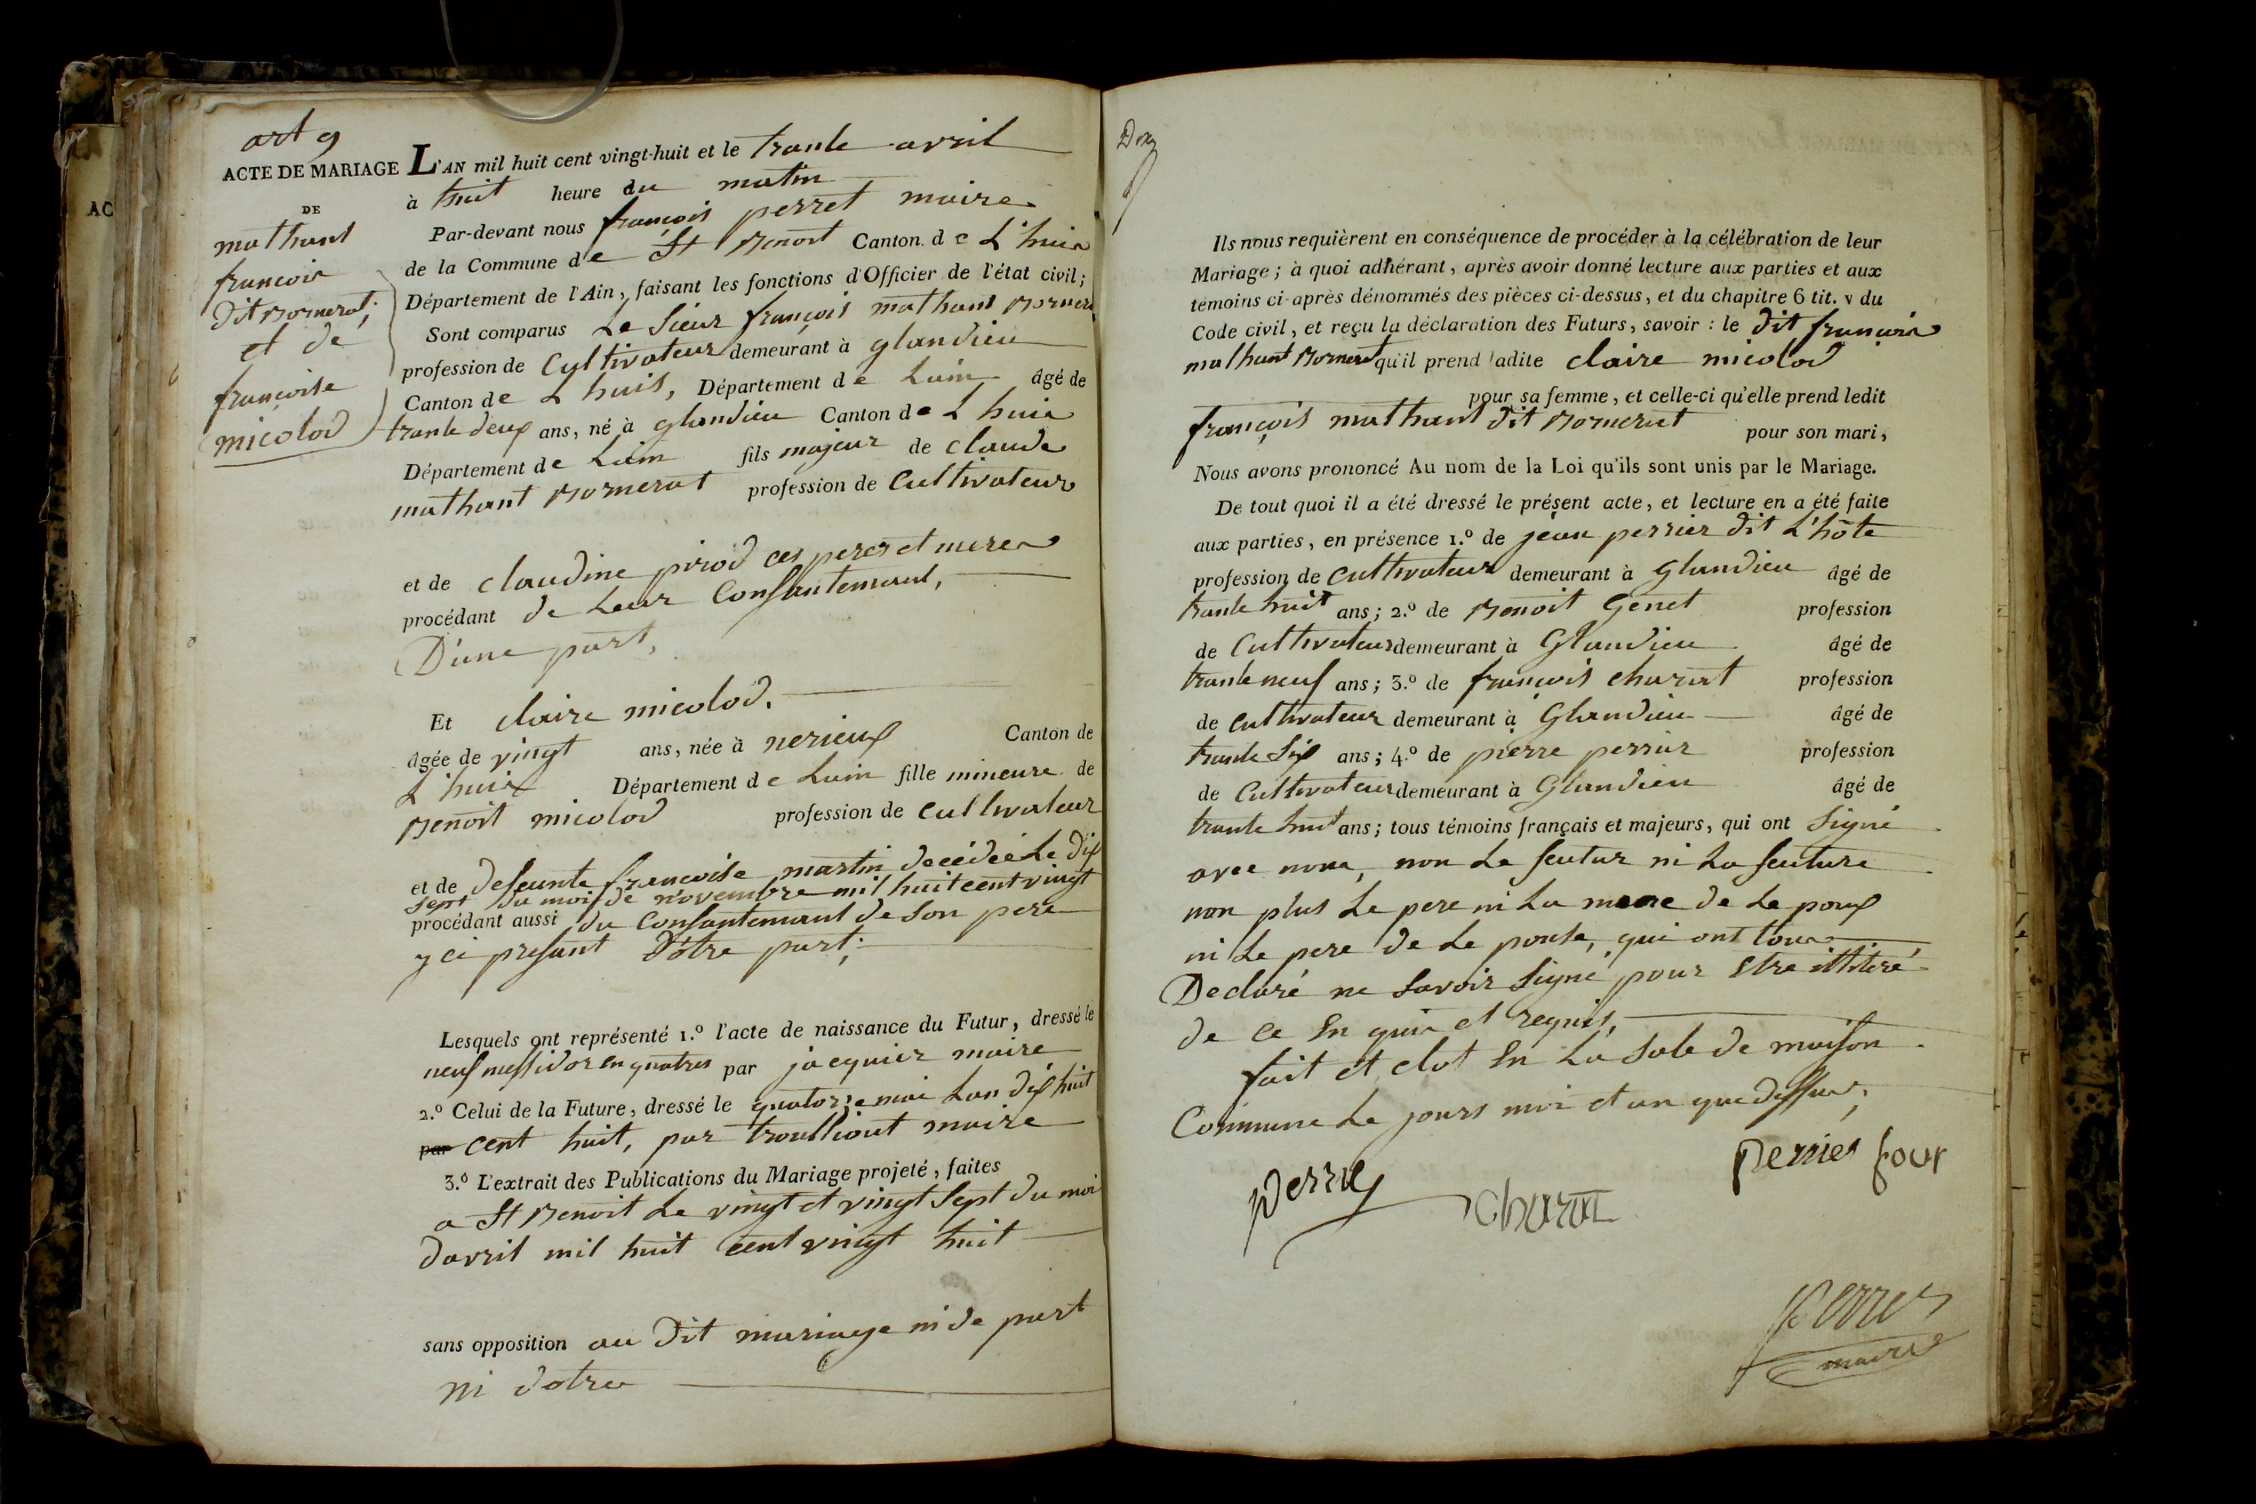 art 9
ACTE DE MARIAGE
DE
mathant
francois
dit Bornerat;
et de
francoise
micolod
L'AN mil huit cent vingt-huit et le trante avril
à huit heure du matin
Par-devant nous françois perret maire
de la Commune de St Benoit Canton de L'huis
Département de l'Ain, faisant les fonctions d'Officier de l'état civil;
Sont comparus Le Sieur françois mathant Bornera
profession de Cultivateur demeurant à glandieu
Canton de L huis, Département de Lain âgé de
trante deux ans, né à glandieu Canton de L huis
Département de Lain fils majeur de claude
mathant Bornerat profession de Cultivateur
et de claudine pirod ces peres et meres
procédant de Leur Consantemant,
D'une part,
Et claire micolod.
âgée de vingt ans, née à nerieux Canton de
L'huis Département de Lain fille mineure de
Benoit micolod profession de cultivateur
et de defeunte francoise martin decédée Le dix
sept du mois de novembre mil huit cent vingt
procédant aussi du Consantemant de Son pere
y ci presant d'otre part;
Lesquels ont représenté 1.º l'acte de naissance du Futur, dressé le
neuf messidor en quatres par jacquier maire
2.º Celui de la Future, dressé le quatorze mai Lan dix huit
par cent huit, par troulliout maire
3.º L'extrait des Publications du Mariage projeté, faites
a St Benoit Le vingt et vingt Sept du moi
davril mil huit cent vingt huit
sans opposition au dit mariage ni de part
ni dotre
Ils nous requièrent en conséquence de procéder à la célébration de leur
Mariage; à quoi adhérant, après avoir donné lecture aux parties et aux
témoins ci-après dénommés des pièces ci-dessus, et du chapitre 6 tit. v du
Code civil, et reçu la déclaration des Futurs, savoir : le dit françois
mathant Bornerat qu'il prend ladite claire micolod
pour sa femme, et celle-ci qu'elle prend ledit
françois mathant dit Bornerat pour son mari,
Nous avons prononcé Au nom de la Loi qu'ils sont unis par le Mariage.
De tout quoi il a été dressé le présent acte, et lecture en a été faite
aux parties, en présence 1.º de jean perrier dit L'hôte
profession de cultivateur demeurant à Glandieu âgé de
trante huit ans; 2.º de Benoit Genet profession
de Cultivateur demeurant à Glandieu âgé de
trante neuf ans; 3.º de françois charat profession
de cultivateur demeurant à Glandieu âgé de
trante Six ans; 4.º de pierre perrier profession
de Cultivateur demeurant à Glandieu âgé de
trante huit ans; tous témoins français et majeurs, qui ont Signé
avec nous, non Le feutur ni La feuture
non plus Le pere ni La mere de Le poux
ni Le pere de Le pouse, qui ont tous
Declaré ne Savoir Signé pour Etre illiteré
de ce En quis et requis,
fait et clot En La Sale de maison
Commune Le jours moi et an que dessus;
perrier
charat
perrier four
Perret
maire